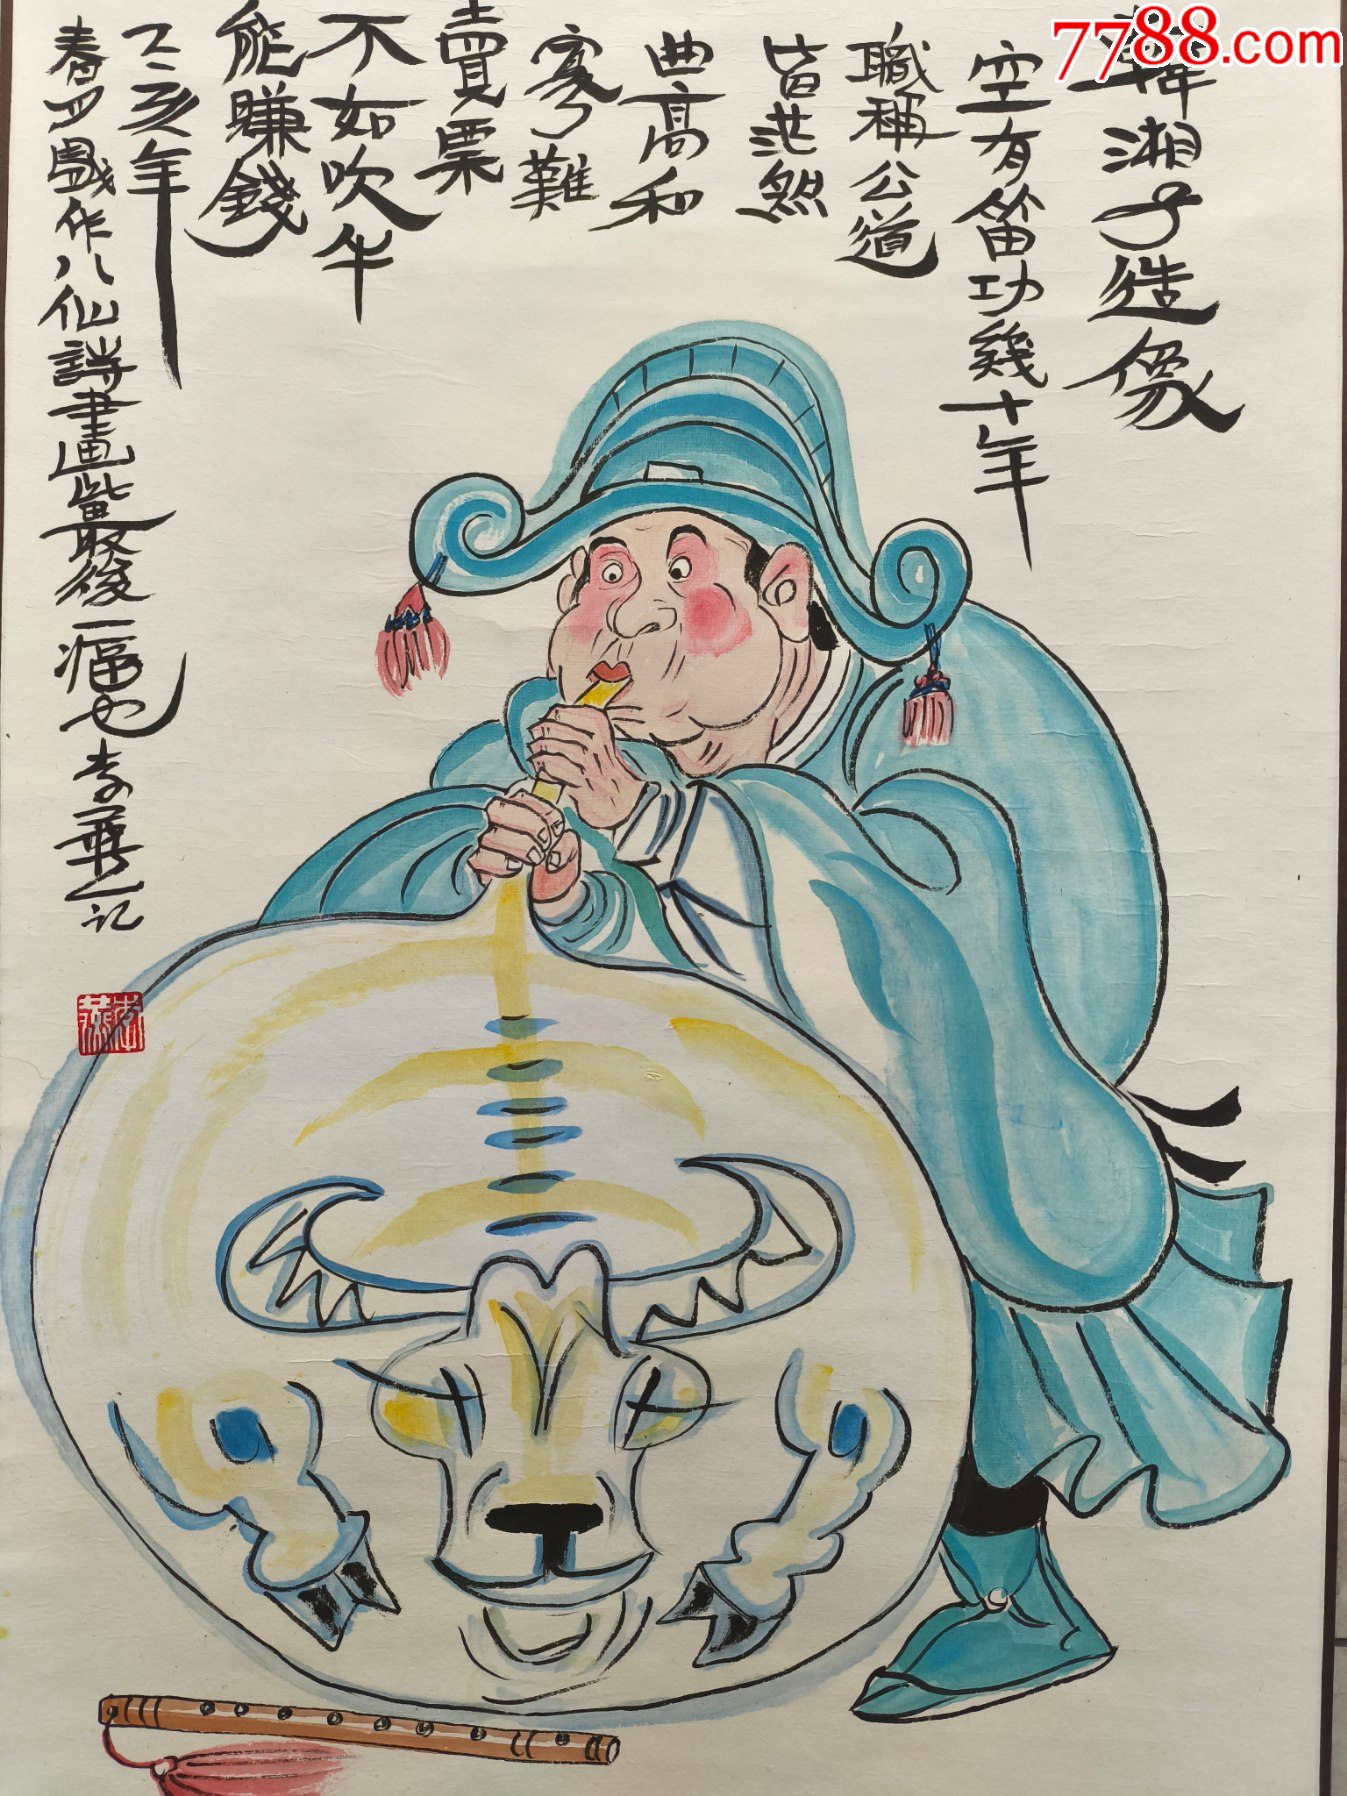 韓湘子造像
空有笛功幾十年
職稱公道
皆茫然
曲高和
寡難
賣票
不如吹牛
能賺錢
丁亥年
春月戲作八仙詩畫此最後一幅也 李燕記
李燕
7788.com